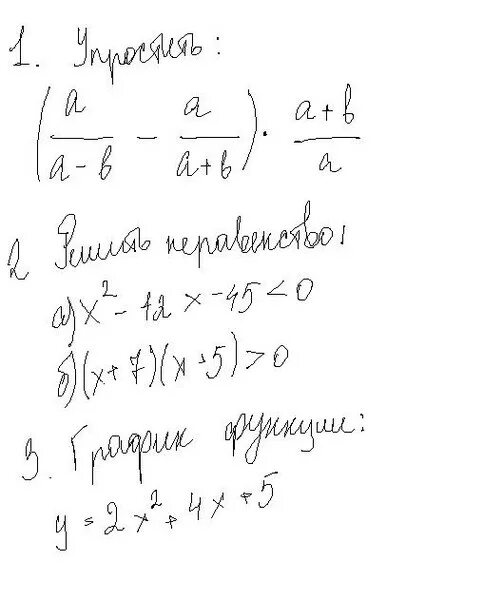 1. Упростить:
(a/(a-в) - a/(a+в)) · (a+в)/a
2 Решить неравенство:
а) x² - 12x - 45 < 0
б) (x+7)(x+5) > 0
3. График функции:
y = 2x² + 4x + 5